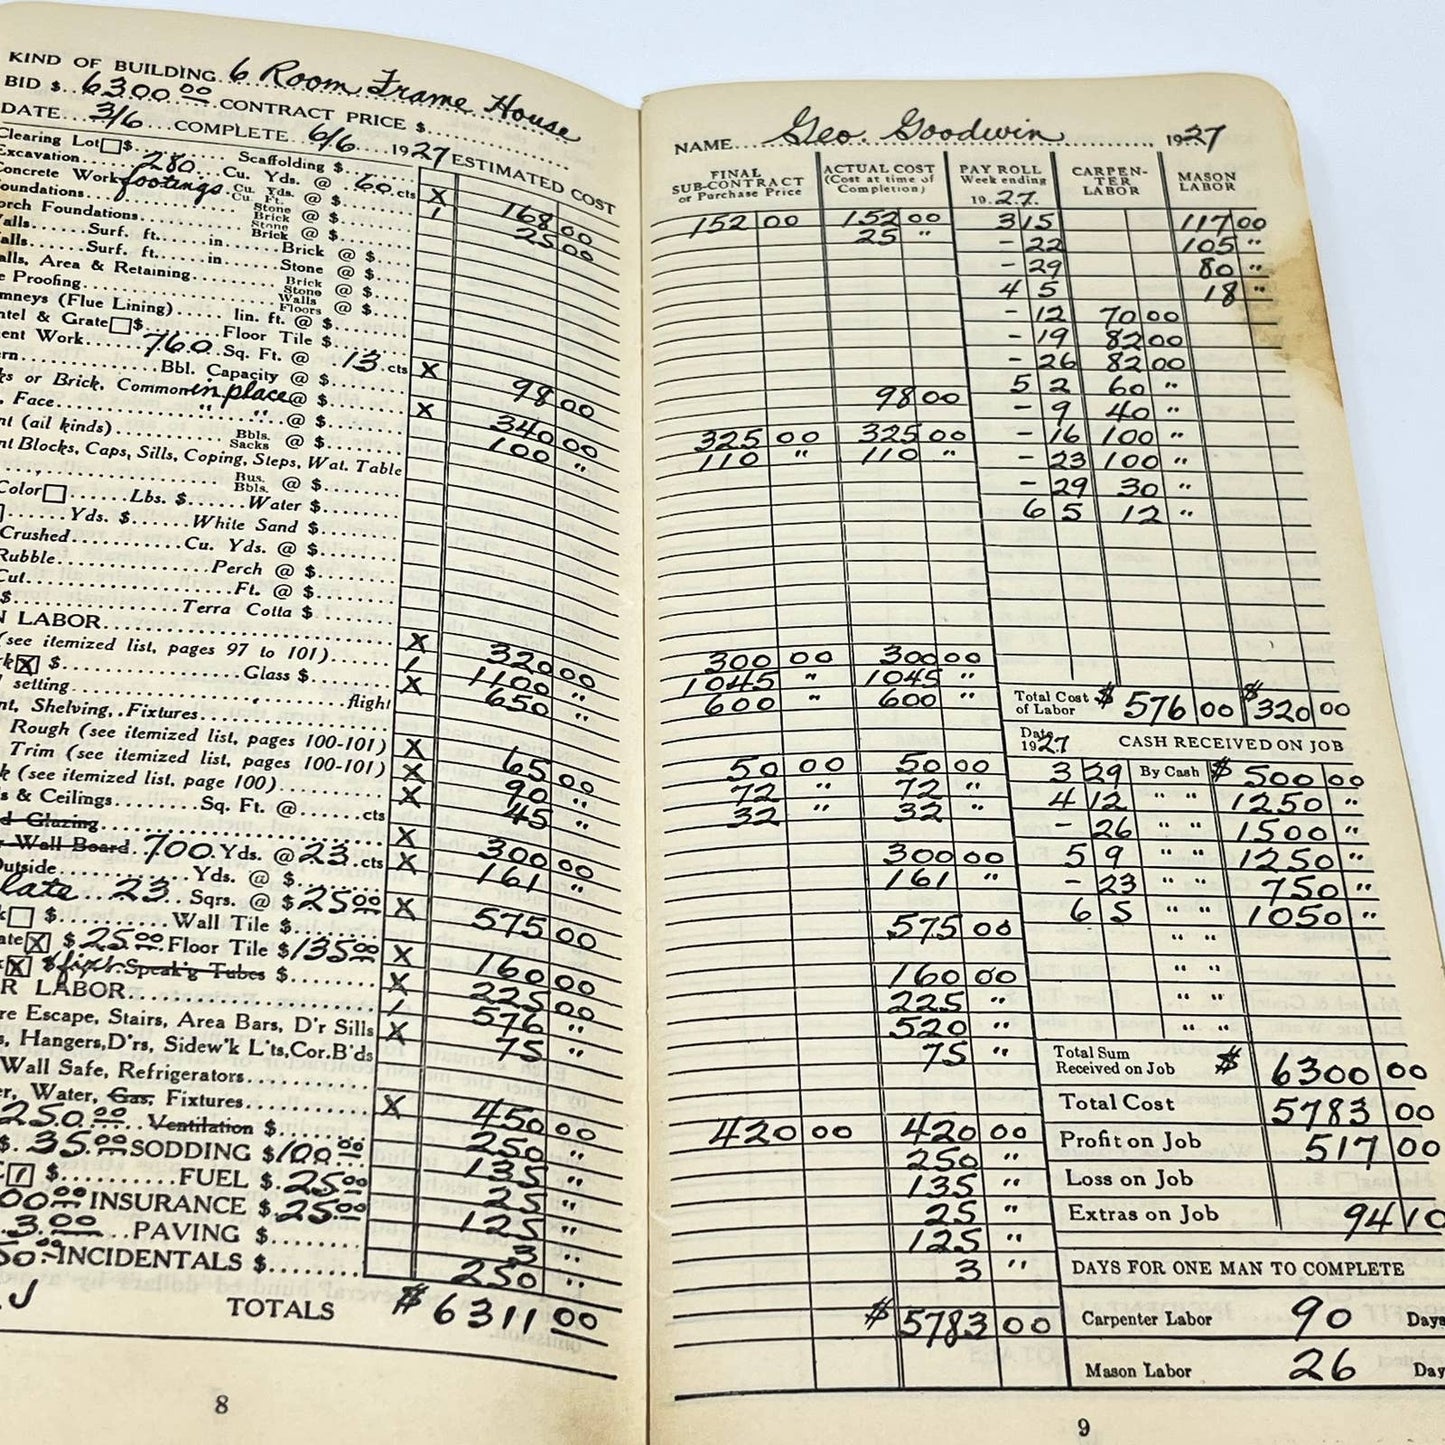 KIND OF BUILDING 6 Room Frame House
BID $ 6300 00 CONTRACT PRICE $
DATE 3/6 COMPLETE 6/6 1927 ESTIMATED COST
Clearing Lot $ Scaffolding $
Excavation 280 Cu. Yds. @ .60 cts X 168 00
Concrete Work footings Cu. Yds. Cu. Ft. @ $ / 25 00
oundations Stone Brick @ $
orch Foundations Stone Brick @ $
alls Surf. ft. in Brick @ $
alls Surf. ft. in Stone @ $
alls, Area & Retaining Brick Stone @ $
e Proofing Walls Floors @ $
mneys (Flue Lining) lin. ft. @ $
ntel & Grate $ Floor Tile $
ent Work 760 Sq. Ft. @ 13 cts X 98 00
ern Bbl. Capacity @ $
ks or Brick, Common in place @ $ X 340 00
, Face " " @ $ 100 "
nt (all kinds) Bbls. Sacks @ $
nt Blocks, Caps, Sills, Coping, Steps, Wat. Table
Bus. Bbls. @ $
Color Lbs. $ Water $
Yds. $ White Sand $
Crushed Cu. Yds. @ $
Rubble Perch @ $
Cut Ft. @ $
$ Terra Cotta $
N LABOR X 320 00
(see itemized list, pages 97 to 101) / 1100 "
k X $ Glass $ X 650 "
setting flight
nt, Shelving, Fixtures
Rough (see itemized list, pages 100-101) X 65 00
Trim (see itemized list, pages 100-101) X 90 "
k (see itemized list, page 100) X 45 "
s & Ceilings Sq. Ft. @ cts
d Glazing X 300 00
Wall Board 700 Yds. @ 23 cts X 161 "
Outside Yds. @ $
late 23 Sqrs. @ $ 25 00 X 575 00
k $ Wall Tile $
ate X $ 25 00 Floor Tile $ 135 00 X 160 00
k X $ fixt. Speak'g Tubes $ X 225 00
R LABOR / 576 "
re Escape, Stairs, Area Bars, D'r Sills X 75 "
s, Hangers, D'rs, Sidew'k L'ts, Cor. B'ds
Wall Safe, Refrigerators
er, Water, Gas, Fixtures X 450 00
250 00 Ventilation $ 250 "
$ 35 00 SODDING $ 100 00 135 "
/ $ FUEL $ 25 00 25 "
00 00 INSURANCE $ 25 00 125 "
3.00 PAVING $ 3 "
50 00 INCIDENTALS $ 250 "
TOTALS $ 6311 00
8
NAME Geo. Goodwin, 1927
FINAL SUB-CONTRACT or Purchase Price ACTUAL COST (Cost at time of Completion) PAY ROLL Week ending 19 27 CARPENTER LABOR MASON LABOR
152 00 152 00 3 15 117 00
25 " - 22 105 "
- 29 80 "
4 5 18 "
- 12 70 00
- 19 82 00
- 26 82 00
98 00 5 2 60 "
- 9 40 "
325 00 325 00 - 16 100 "
110 " 110 " - 23 100 "
- 29 30 "
6 5 12 "
300 00 300 00
1045 " 1045 "
600 " 600 " Total Cost of Labor $ 576 00 $ 320 00
Date 1927 CASH RECEIVED ON JOB
50 00 50 00 3 29 By Cash $ 500 00
72 " 72 " 4 12 " " 1250 "
32 " 32 " - 26 " " 1500 "
300 00 5 9 " " 1250 "
161 " - 23 " " 750 "
6 5 " " 1050 "
575 00 " "
160 00 " "
225 " " "
520 " " "
75 " Total Sum Received on Job $ 6300 00
Total Cost 5783 00
420 00 420 00 Profit on Job 517 00
250 "
135 " Loss on Job
25 " Extras on Job 94 10
125 "
3 " DAYS FOR ONE MAN TO COMPLETE
$ 5783 00 Carpenter Labor 90 Days
Mason Labor 26 Day
9